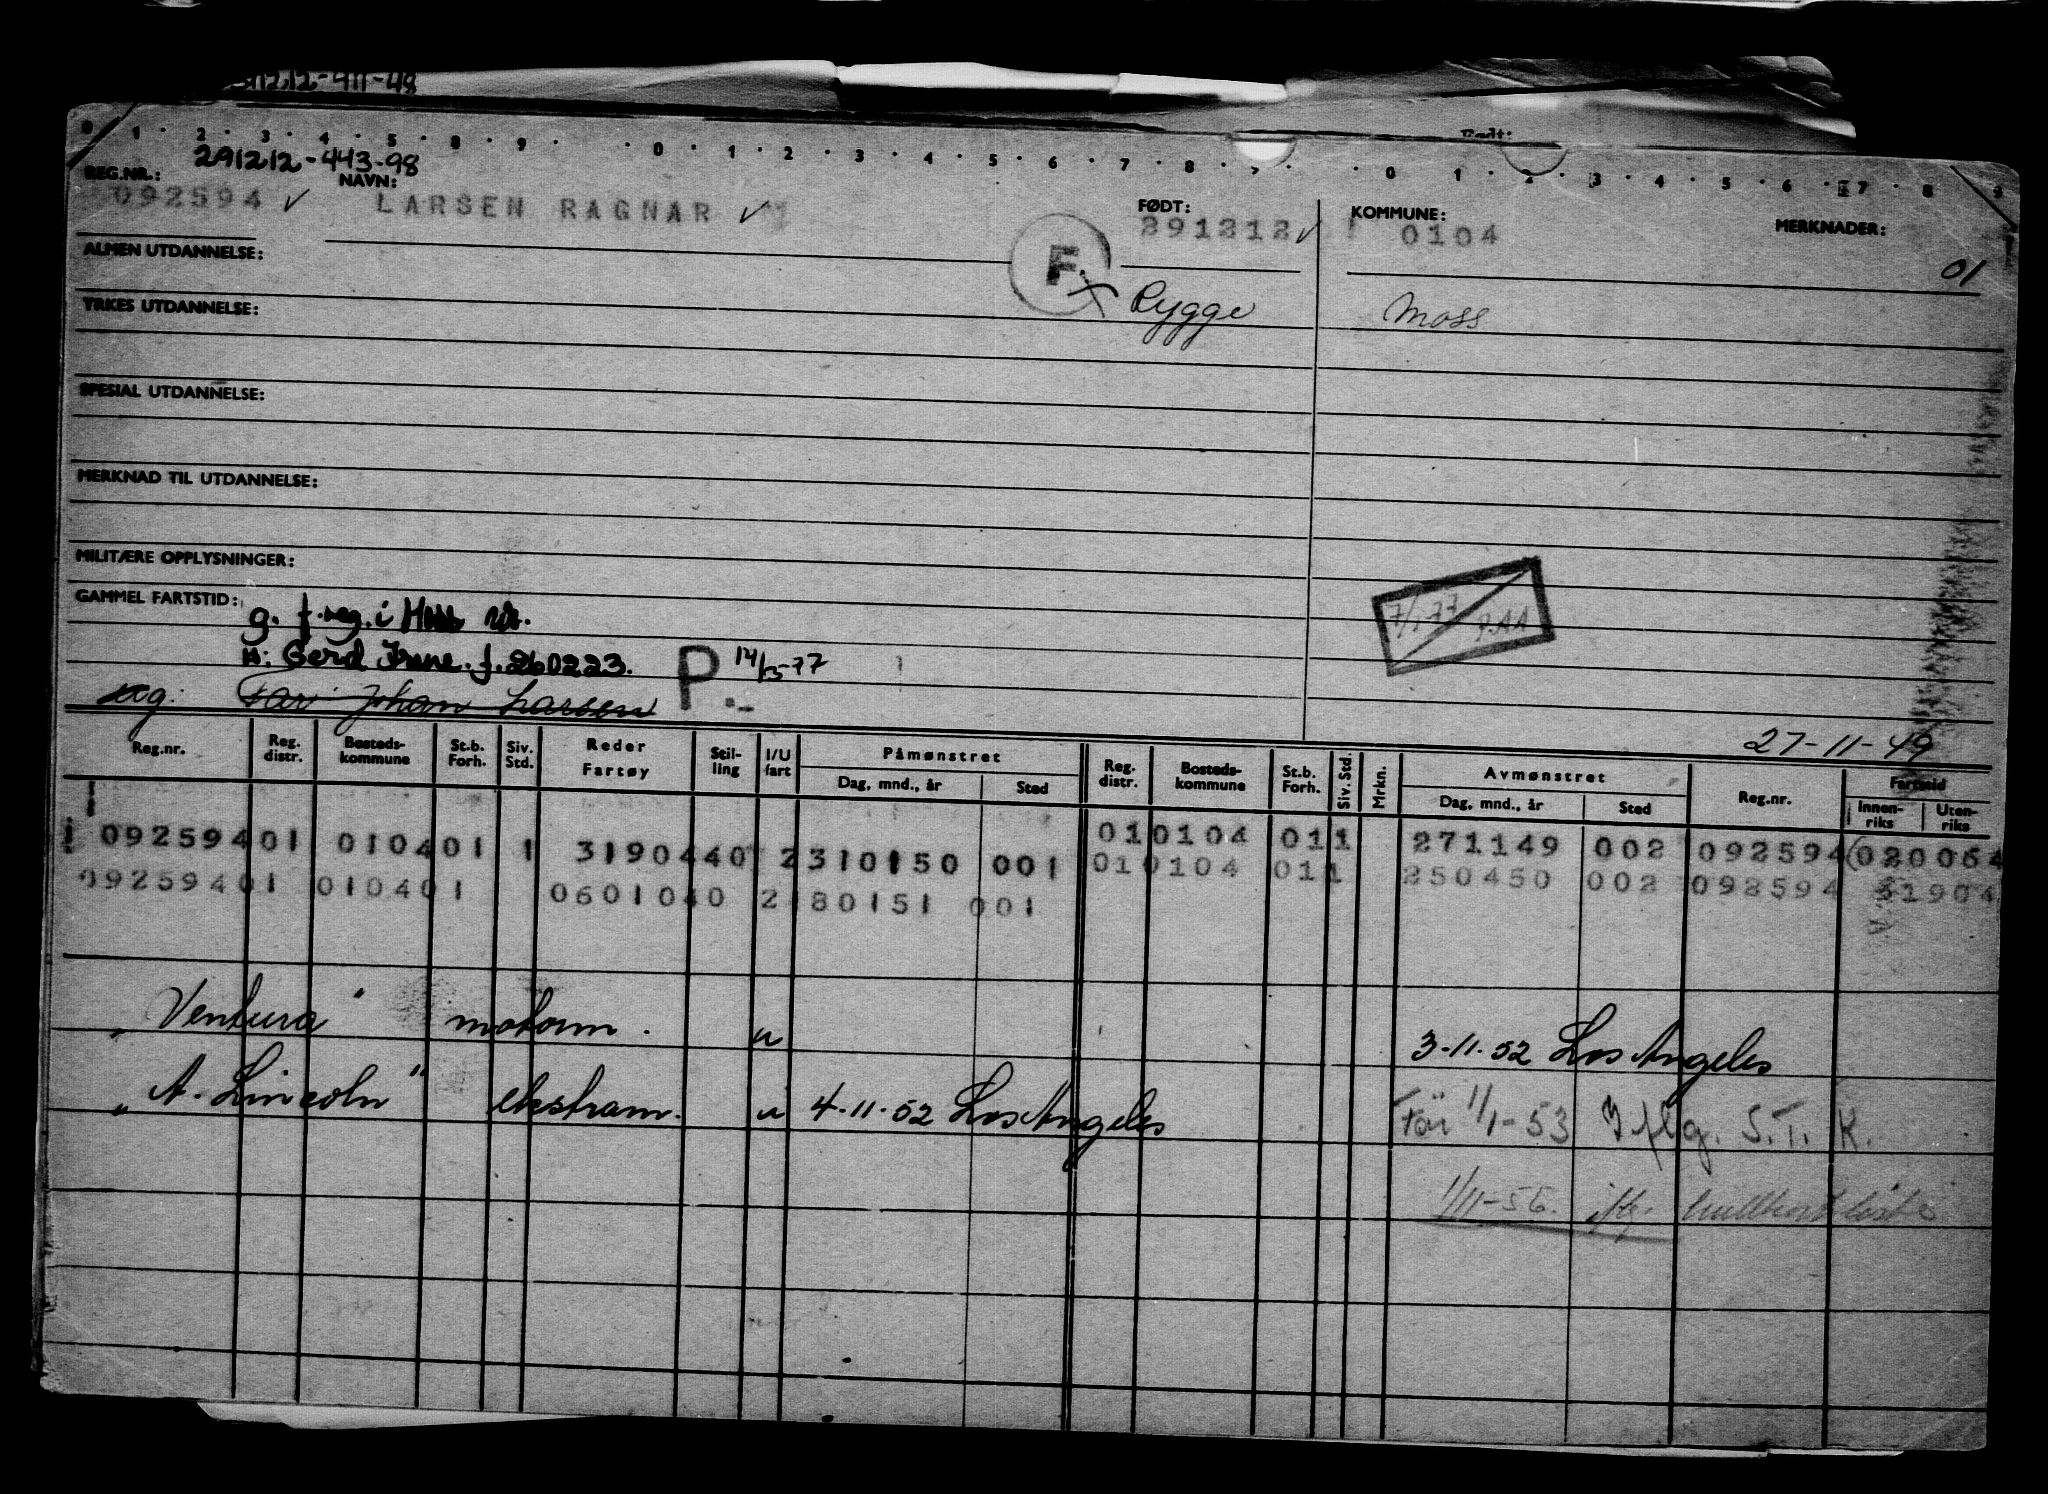 0 1 2 3 4 5 8 9 0 1 2 3 4 5 6 7 8 0 1 2 3 4 5 6 7 8 9
REG.NR.: 291212-443-98 NAVN: FØDT: KOMMUNE: MERKNADER:
092594 ✓ LARSEN RAGNAR ✓ 291212 ✓ 0104
ALMEN UTDANNELSE: F 01
YRKES UTDANNELSE: Rygge Moss
SPESIAL UTDANNELSE:
MERKNAD TIL UTDANNELSE:
MILITÆRE OPPLYSNINGER:
GAMMEL FARTSTID: g. f. reg. i Moss nr.
H: Gerd Irene. f. 260223. P. 14/3-77
Johan Larsen
27-11-49
Reg.nr. Reg. distr. Bosteds-kommune St.b. Forh. Siv. Std. Reder Fartøy Stil-ling I/U fart Påmønstret Dag, mnd., år Sted Reg. distr. Bosteds-kommune St.b. Forh. Siv. Std. Mrkn. Avmønstret Dag, mnd., år Sted Reg.nr. Fartstid Innen-riks Uten-riks
092594 01 0104 01 1 31904 40 2 310150 001 01 0104 01 1 271149 002 092594 020064
092594 01 0104 01 06010 40 2 180151 001 01 0104 01 1 250450 002 092594 31904
"Ventura" motorm. u 3-11-52 Los Angeles
"A. Lincoln" ekstram. u 4-11-52 Los Angeles Før 1/1-53 Iflg. S.T.K.
1/11-56. iflg.